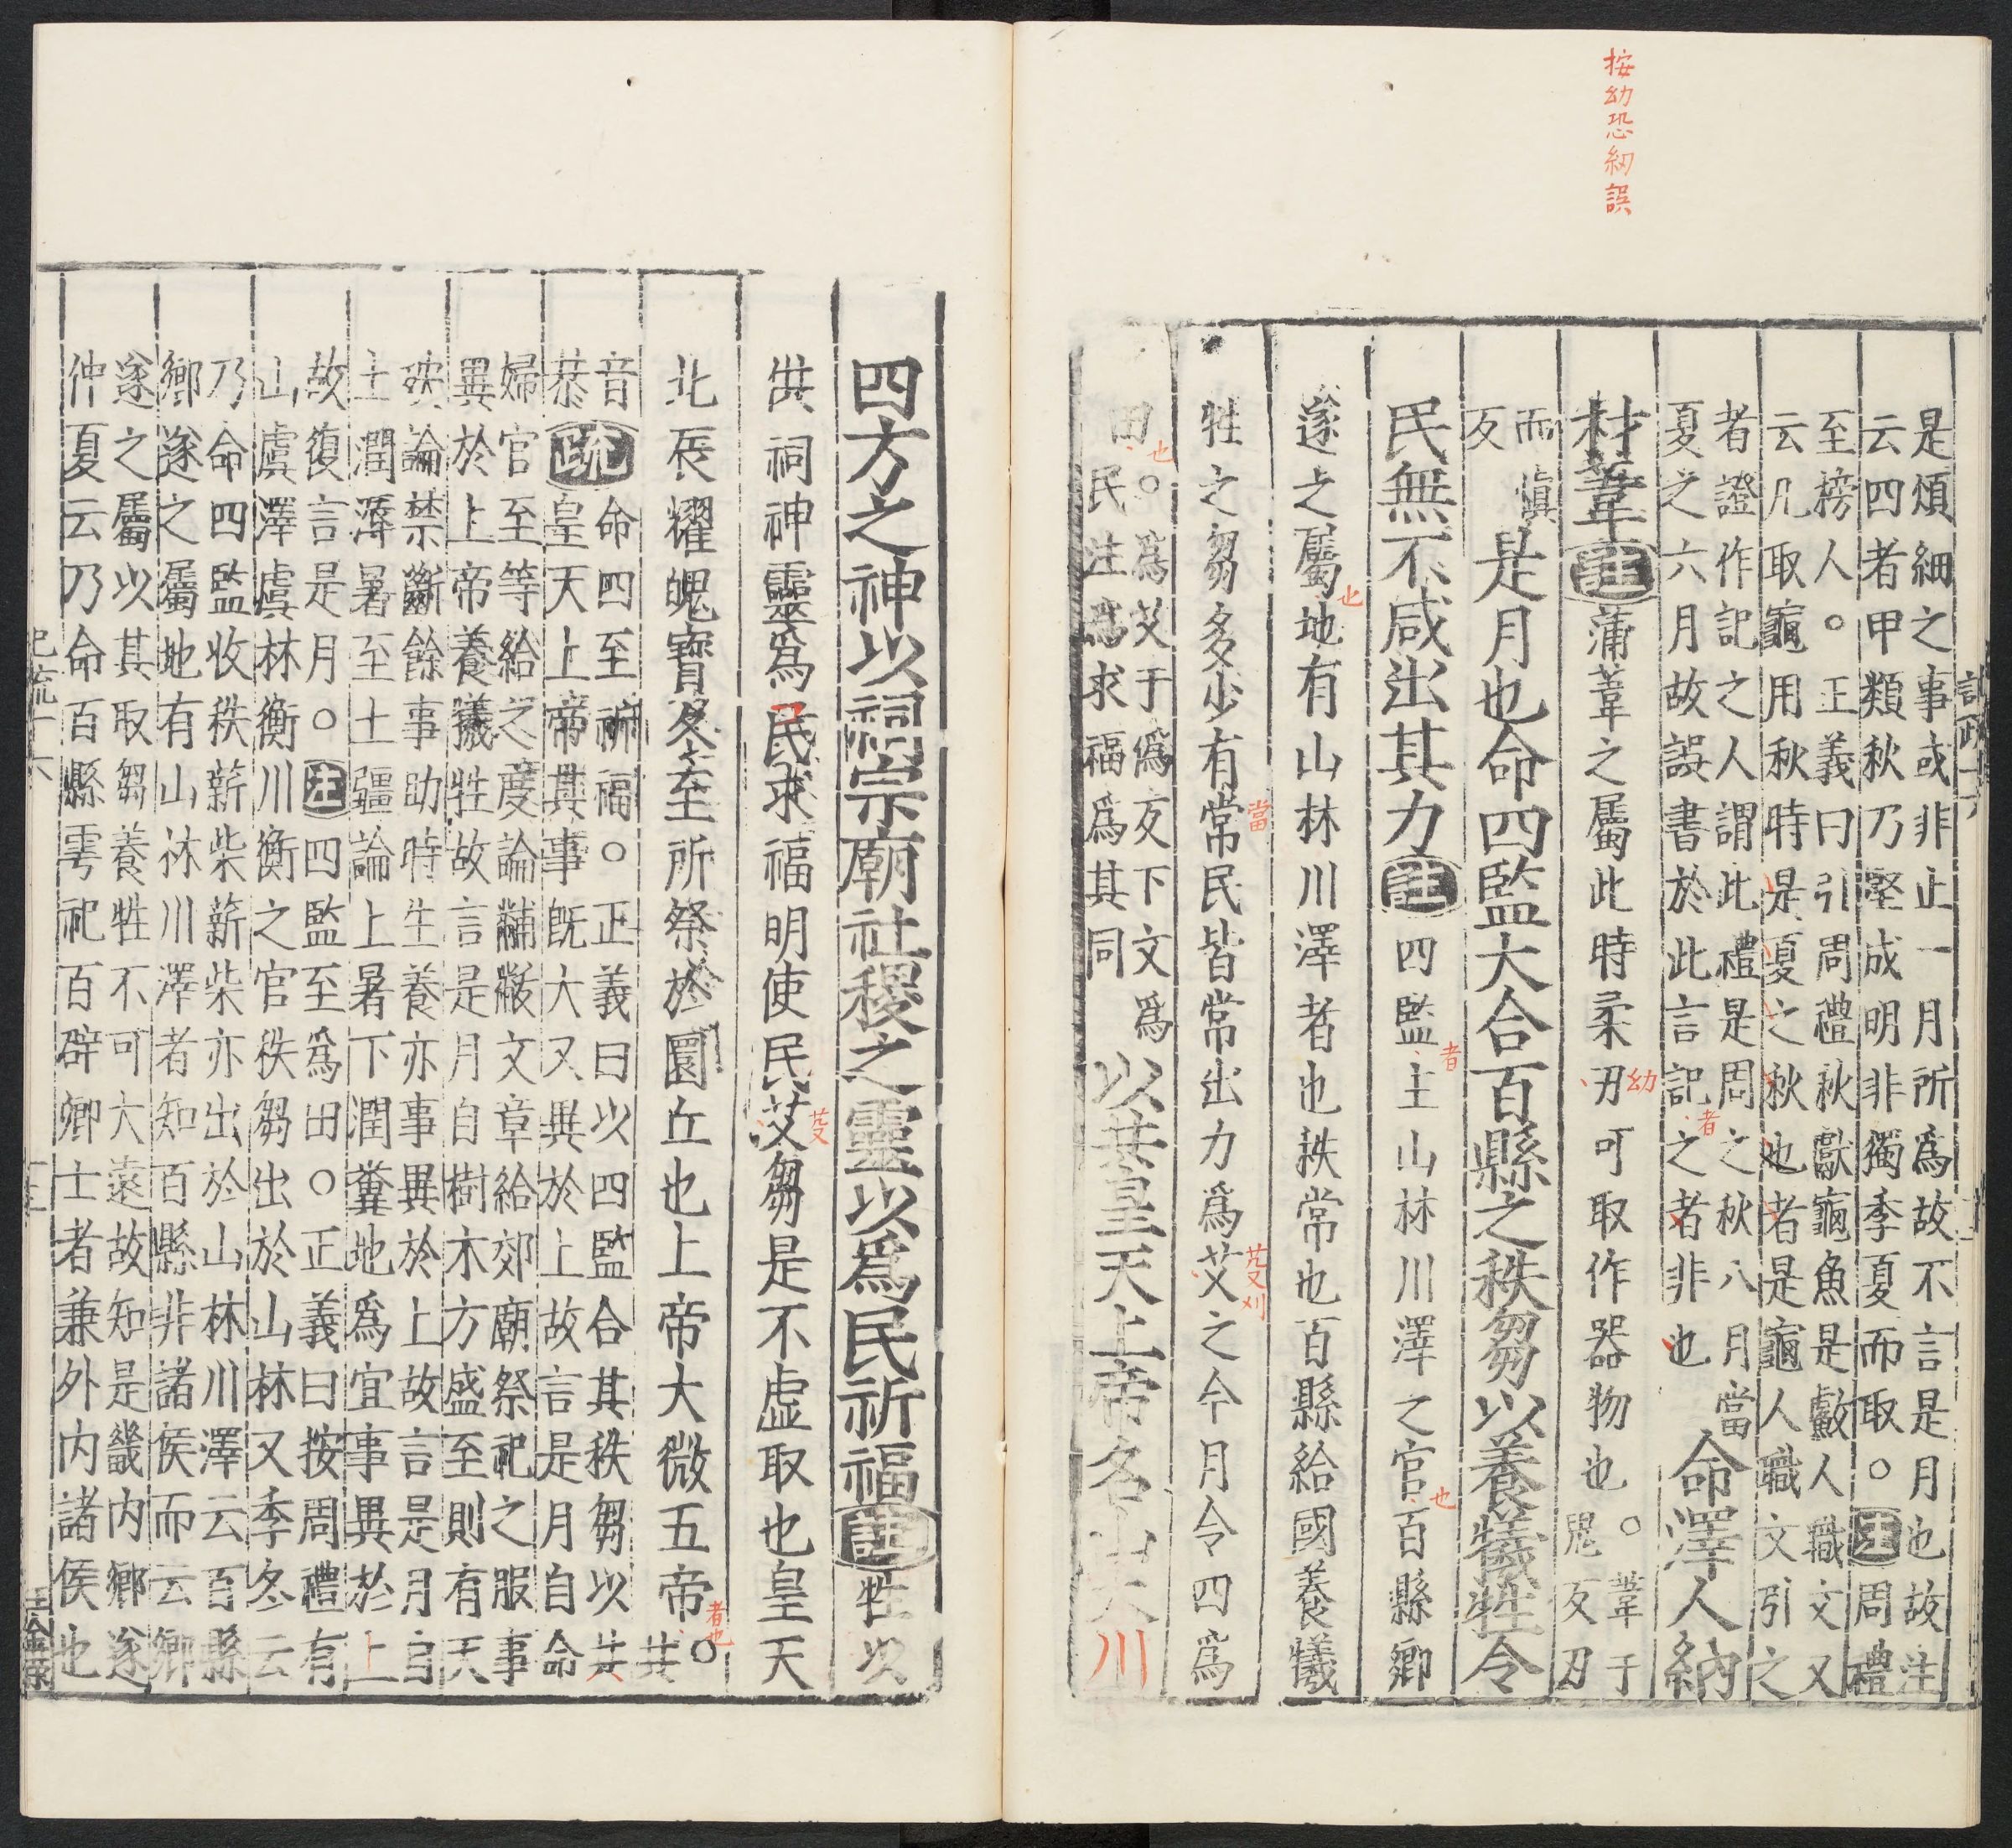 按幼恐紉誤
是煩細之事或非止一月所爲故不言是月也故注
云四者甲類秋乃堅成明非獨季夏而取○注周禮
至榜人○正義曰引周禮秋獻龜魚是䱷人職文又
云凡取龜用秋時是夏之秋也者是龜人職文引之
者證作記之人謂此禮是周之秋八月當
夏之六月故誤書於此言記之者非也
者
命澤人納
材葦註蒲葦之屬此時柔刃可取作器物也
幼
○葦于
鬼反刃
而慎
反
是月也命四監大合百縣之秩芻以養犧牲令
民無不咸出其力註四監主山林川澤之官百縣鄉
者
也
遂之屬地有山林川澤者也秩常也百縣給國養犧
也
牲之芻多少有常民皆常出力爲艾之今月令四爲
當
芟刈
田○爲艾于僞反下文爲
也
民注爲求福爲其同
以共皇天上帝名山大川
四方之神以祠宗廟社稷之靈以爲民祈福註牲以
供祠神靈爲民求福明使民艾芻是不虛取也皇天
芟
北辰耀魄寶冬至所祭於圜丘也上帝大微五帝○
者也
共
音
恭
疏命四至祈福○正義曰以四監合其秩芻以共
皇天上帝其事既大又異於上故言是月自命
婦官至等給之度論黼黻文章給郊廟祭祀之服事
異於上帝養犧牲故言是月自樹木方盛至則有天
殃論禁斷餘事助時生養亦事異於上故言是月自
土潤溽暑至土疆論上暑下潤糞地爲宜事異於上
故復言是月○注四監至爲田○正義曰按周禮有
山虞澤虞林衡川衡之官秩芻出於山林又季冬云
乃命四監收秩薪柴薪柴亦出於山林川澤云百縣
鄉遂之屬地有山林川澤者知百縣非諸侯而云鄉
遂之屬以其取芻養牲不可大遠故知是畿內鄉遂
仲夏云乃命百縣雩祀百辟卿士者兼外內諸侯也